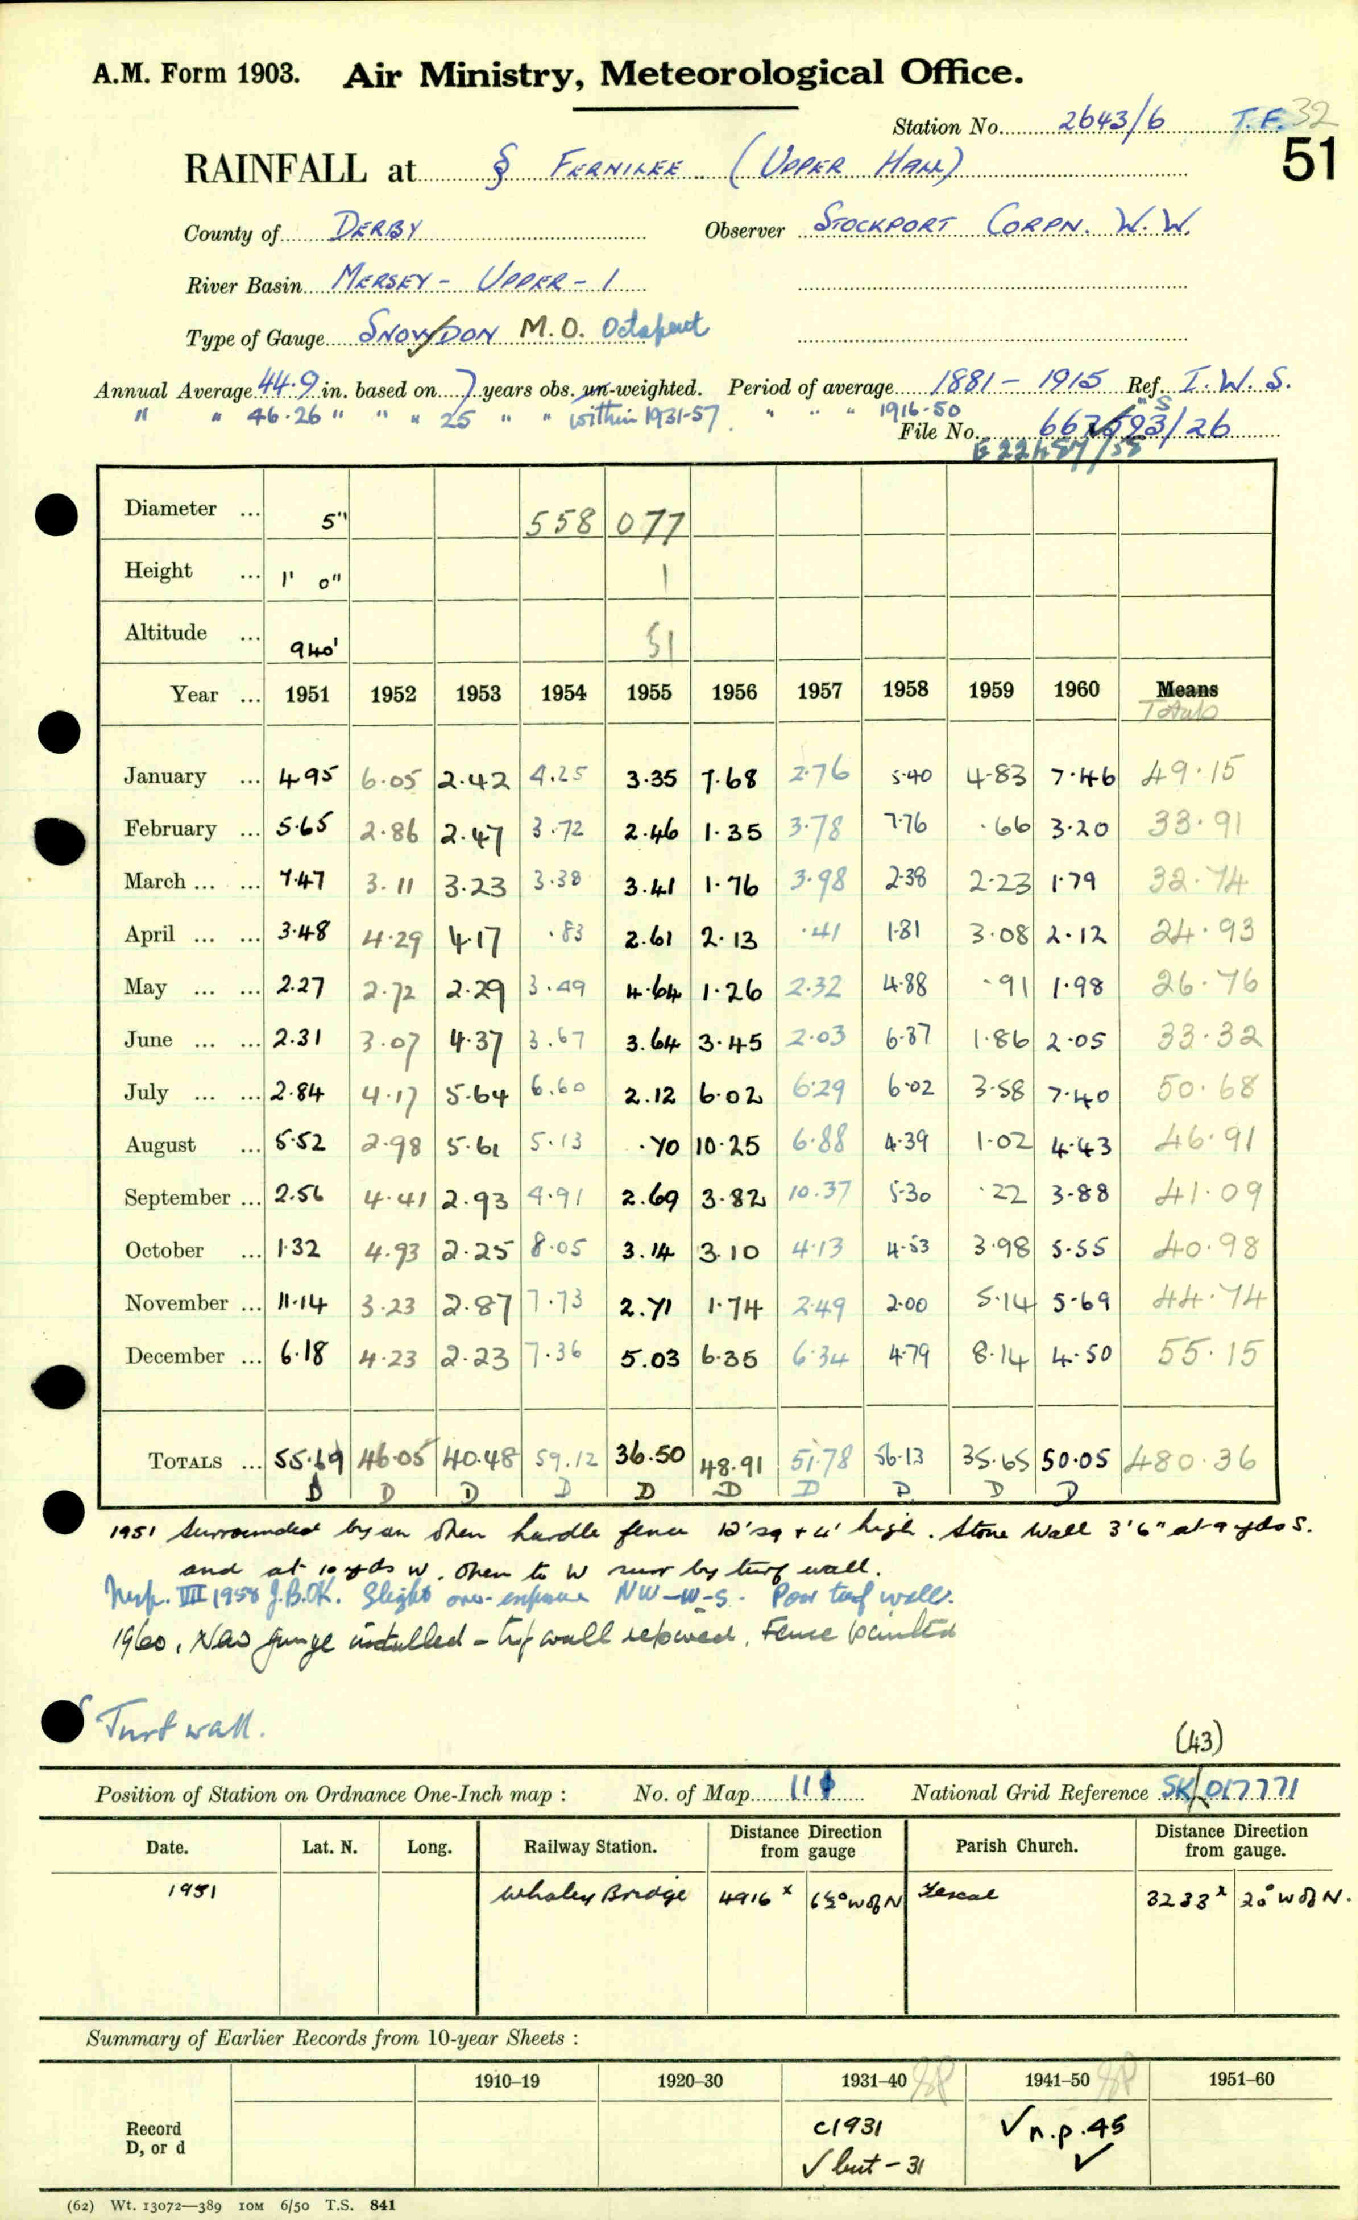 A.M. Form 1903. Air Ministry, Meteorological Office.
Station No. 2643/6 T.F. 32
51
RAINFALL at § FERNILEE (UPPER HALL)
County of DERBY Observer STOCKPORT CORPN. W.W.
River Basin MERSEY - UPPER - 1
Type of Gauge SNOWDON M.O. Octapent
Annual Average 44.9 in. based on 7 years obs. un-weighted. Period of average 1881 - 1915 Ref. I.W.S.
" " 46.26 " " " 25 " " within 1931-57. " " " 1916-50
File No.
Diameter ... 5" 558 077
Height ... 1' 0" 1
Altitude ... 940' 51
Year ... 1951 1952 1953 1954 1955 1956 1957 1958 1959 1960 Means
Totals
January ... 4.95 6.05 2.42 4.25 3.35 7.68 2.76 5.40 4.83 7.46 49.15
February ... 5.65 2.86 2.47 3.72 2.46 1.35 3.78 7.76 .66 3.20 33.91
March ... ... 7.47 3.11 3.23 3.38 3.41 1.76 3.98 2.38 2.23 1.79 32.74
April ... ... 3.48 4.29 4.17 .83 2.61 2.13 .41 1.81 3.08 2.12 24.93
May ... ... 2.27 2.72 2.29 3.49 4.64 1.26 2.32 4.88 .91 1.98 26.76
June ... ... 2.31 3.07 4.37 3.67 3.64 3.45 2.03 6.87 1.86 2.05 33.32
July ... ... 2.84 4.17 5.64 6.60 2.12 6.02 6.29 6.02 3.58 7.40 50.68
August ... 5.52 2.98 5.61 5.13 .70 10.25 6.88 4.39 1.02 4.43 46.91
September ... 2.56 4.41 2.93 4.91 2.69 3.82 10.37 5.30 .22 3.88 41.09
October ... 1.32 4.93 2.25 8.05 3.14 3.10 4.13 4.53 3.98 5.55 40.98
November ... 11.14 3.23 2.87 7.73 2.71 1.74 2.49 2.00 5.14 5.69 44.74
December ... 6.18 4.23 2.23 7.36 5.03 6.35 6.34 4.79 8.14 4.50 55.15
TOTALS ... 55.69 46.05 40.48 59.12 36.50 48.91 51.78 56.13 35.65 50.05 480.36
D D D D D D D D D D
1951 Surrounded by an open hurdle fence 12' sq + 4' high. Stone Wall 3' 6" at 9 yds S.
and at 10 yds W. Open to W by turf wall.
Insp. VIII 1958 J.B.OK. Slight over-exposure NW-W-S. Poor turf wall.
1960, New gauge installed - turf wall repaired, Fence painted
Turf wall.
(43)
Position of Station on Ordnance One-Inch map : No. of Map 111 National Grid Reference SK/017771
Date. Lat. N. Long. Railway Station. Distance from gauge Direction Parish Church. Distance from gauge. Direction
1951 Whaley Bridge 4916 x 6½° W of N 3233 x 20° W of N.
Summary of Earlier Records from 10-year Sheets :
1910–19 1920–30 1931–40 1941–50 1951–60
Record D, or d c1931 ✓ n.p. 45
✓ but - 31 ✓
(62) Wt. 13072—389 10M 6/50 T.S. 841